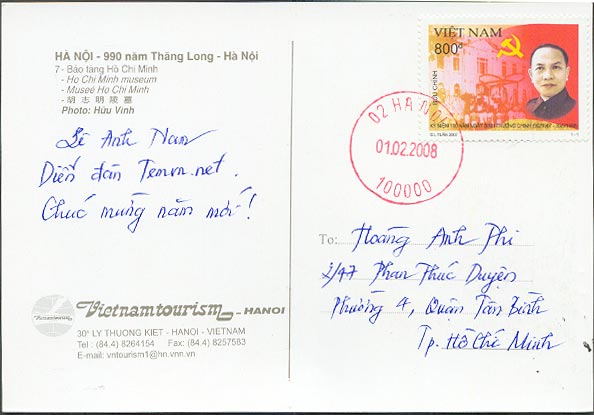 HÀ NỘI - 990 năm Thăng Long - Hà Nội
7 - Bảo tàng Hồ Chí Minh
- Ho Chi Minh museum
- Musee Ho Chi Minh
- 胡志明陵墓
Photo: Hữu Vinh
Lê Anh Nam
Diễn đàn Temvn.net.
Chúc mừng năm mới!
Vietnamtourism - HANOI
30A LY THUONG KIET - HANOI - VIETNAM
Tel : (84.4) 8264154 Fax: (84.4) 8257583
E-mail: vntourism1@hn.vnn.vn
VIỆT NAM
800đ
BƯU CHÍNH
02 HA NOI
01.02.2008
100000
To: Hoàng Anh Phi
2/47 Phan Thúc Duyện
Phường 4, Quận Tân Bình
Tp. Hồ Chí Minh